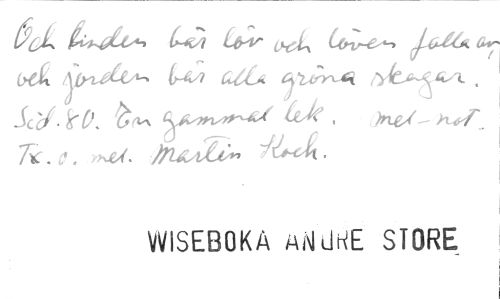 Och linden bär löv och löven falla av,
och jorden bär alla gröna skogar.
Sid. 80. En gammal lek. mel-not.
Tx. o. mel. Martin Koch.
WISEBOKA ANDRE STORE